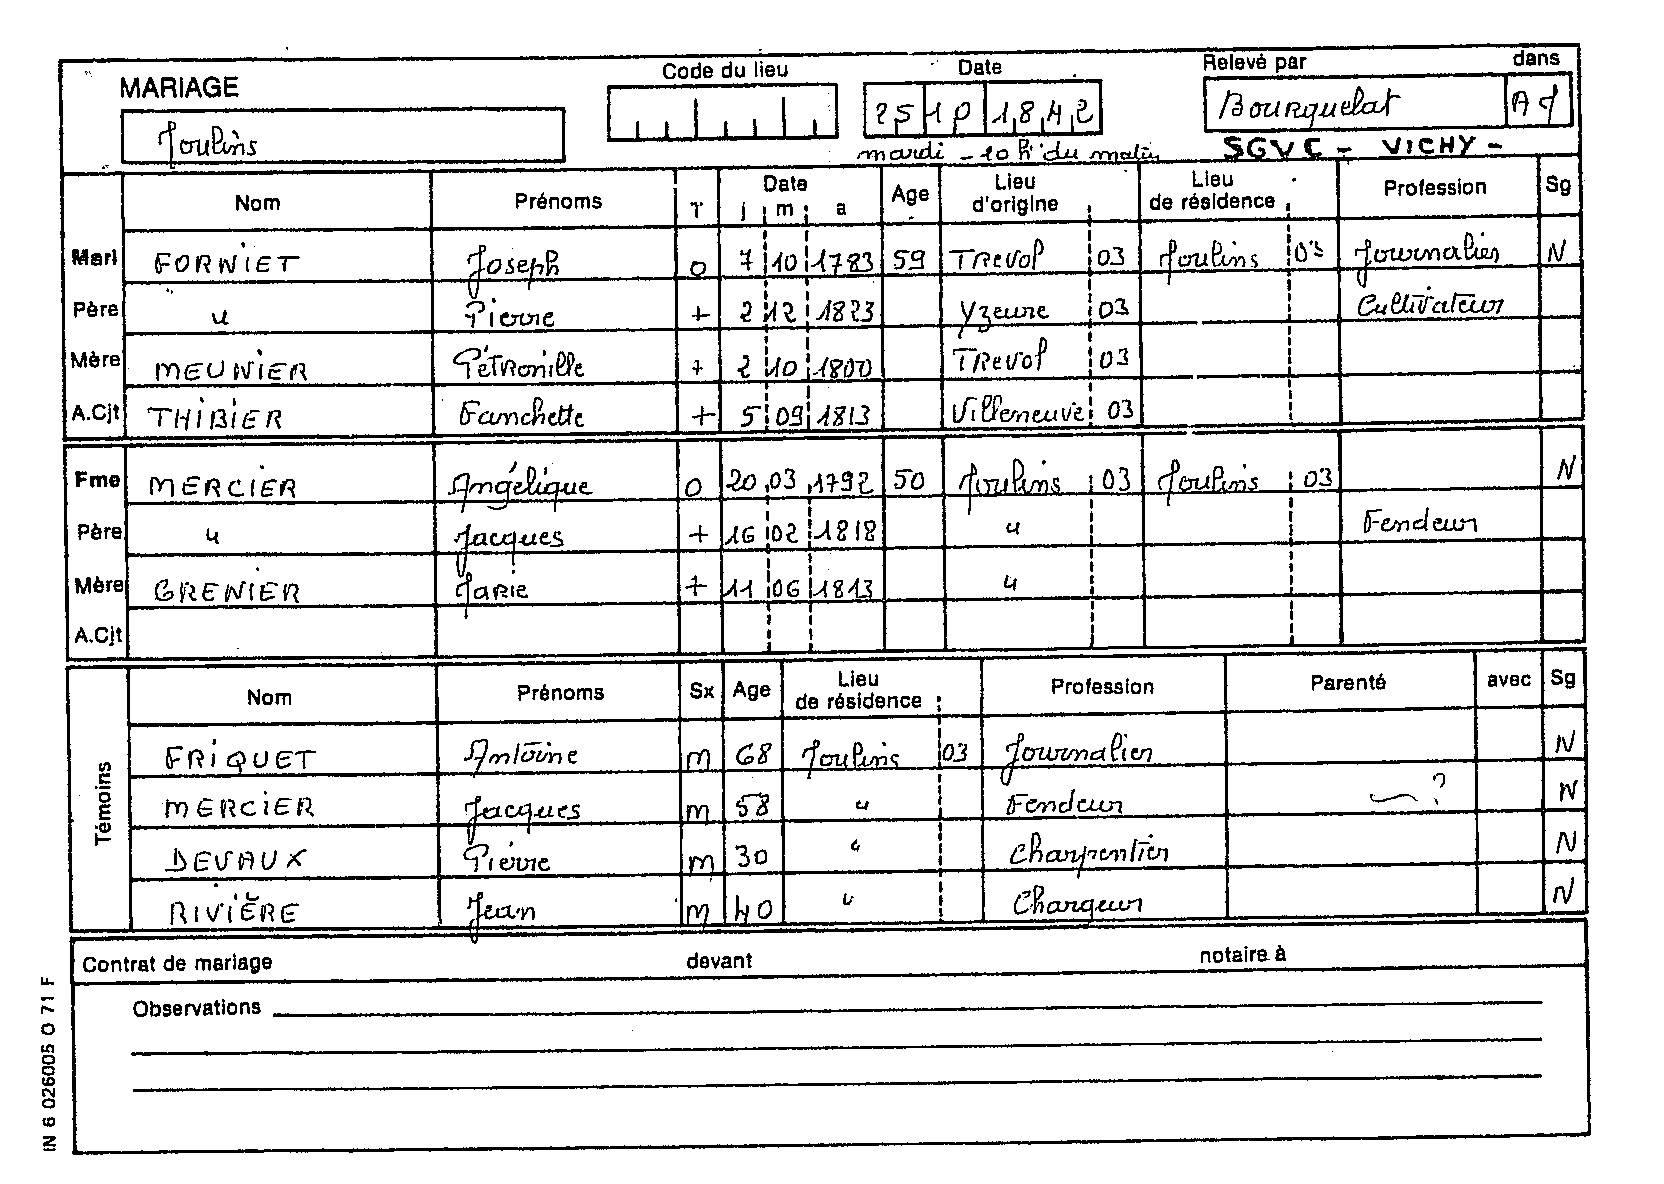 Code du lieu Date Relevé par dans
MARIAGE
Moulins 25 10 1842 Bourquelat AD
mardi - 10 h du matin SGVC - VICHY -
Nom Prénoms T Date j m a Age Lieu d'origine Lieu de résidence Profession Sg
Mari FORNIET Joseph O 7 10 1783 59 TREVOL 03 Moulins 03 Journalier N
Père " Pierre + 2 12 1823 Yzeure 03 Cultivateur
Mère MEUNIER PETRonille + 2 10 1800 TREVOL 03
A.Cjt THIBIER Fanchette + 5 09 1813 Villeneuve 03
Fme MERCIER Angélique O 20 03 1792 50 Moulins 03 Moulins 03 N
Père " Jacques + 16 02 1818 " Fendeur
Mère GRENIER MARIE + 11 06 1813 "
A.Cjt
Témoins
Nom Prénoms Sx Age Lieu de résidence Profession Parenté avec Sg
FRIQUET Antoine m 68 Moulins 03 Journalier N
MERCIER Jacques m 58 " Fendeur ? N
DEVAUX Pierre m 30 " Charpentier N
RIVIÈRE Jean m 40 " Chargeur N
Contrat de mariage devant notaire à
Observations
IN 6 026005 O 71 F